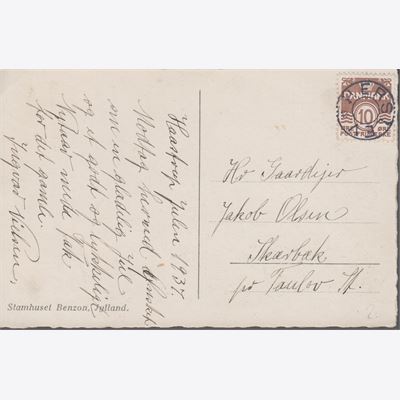 Haastrup julen 1937.
Modtag herved Ønsket
om en glædelig jul
og et godt og lykkelig
Nytaar med Tak
for det gamle
Ingvar Nielsen.
Stamhuset Benzon, Jylland.
DANMARK
10
Hr Gaardejer
Jakob Olsen
Skærbæk
pr Taulov St.